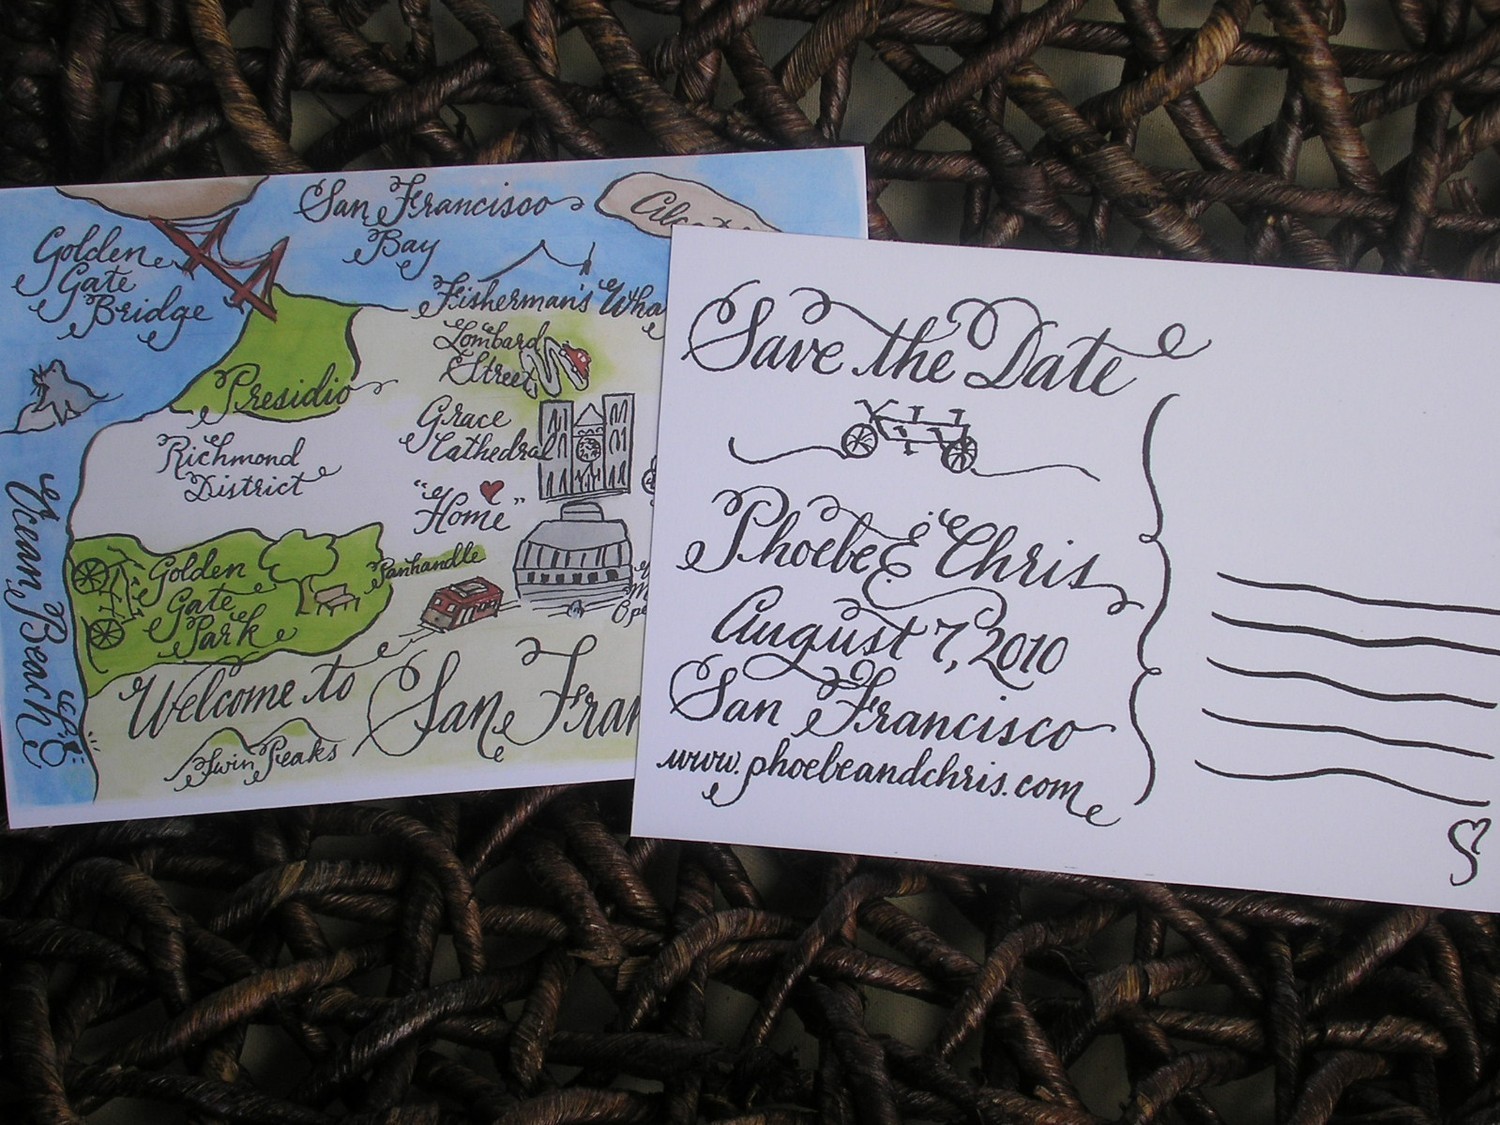 San Francisco
Bay
Golden
Gate
Bridge
Fisherman's
Lombard
Street
Presidio
Grace
Cathedral
Richmond
District
"Home"
Ocean Beach
Golden
Gate
Park
Panhandle
Welcome to San
Twin Peaks
Save the Date
Phoebe & Chris
August 7, 2010
San Francisco
www.phoebeandchris.com